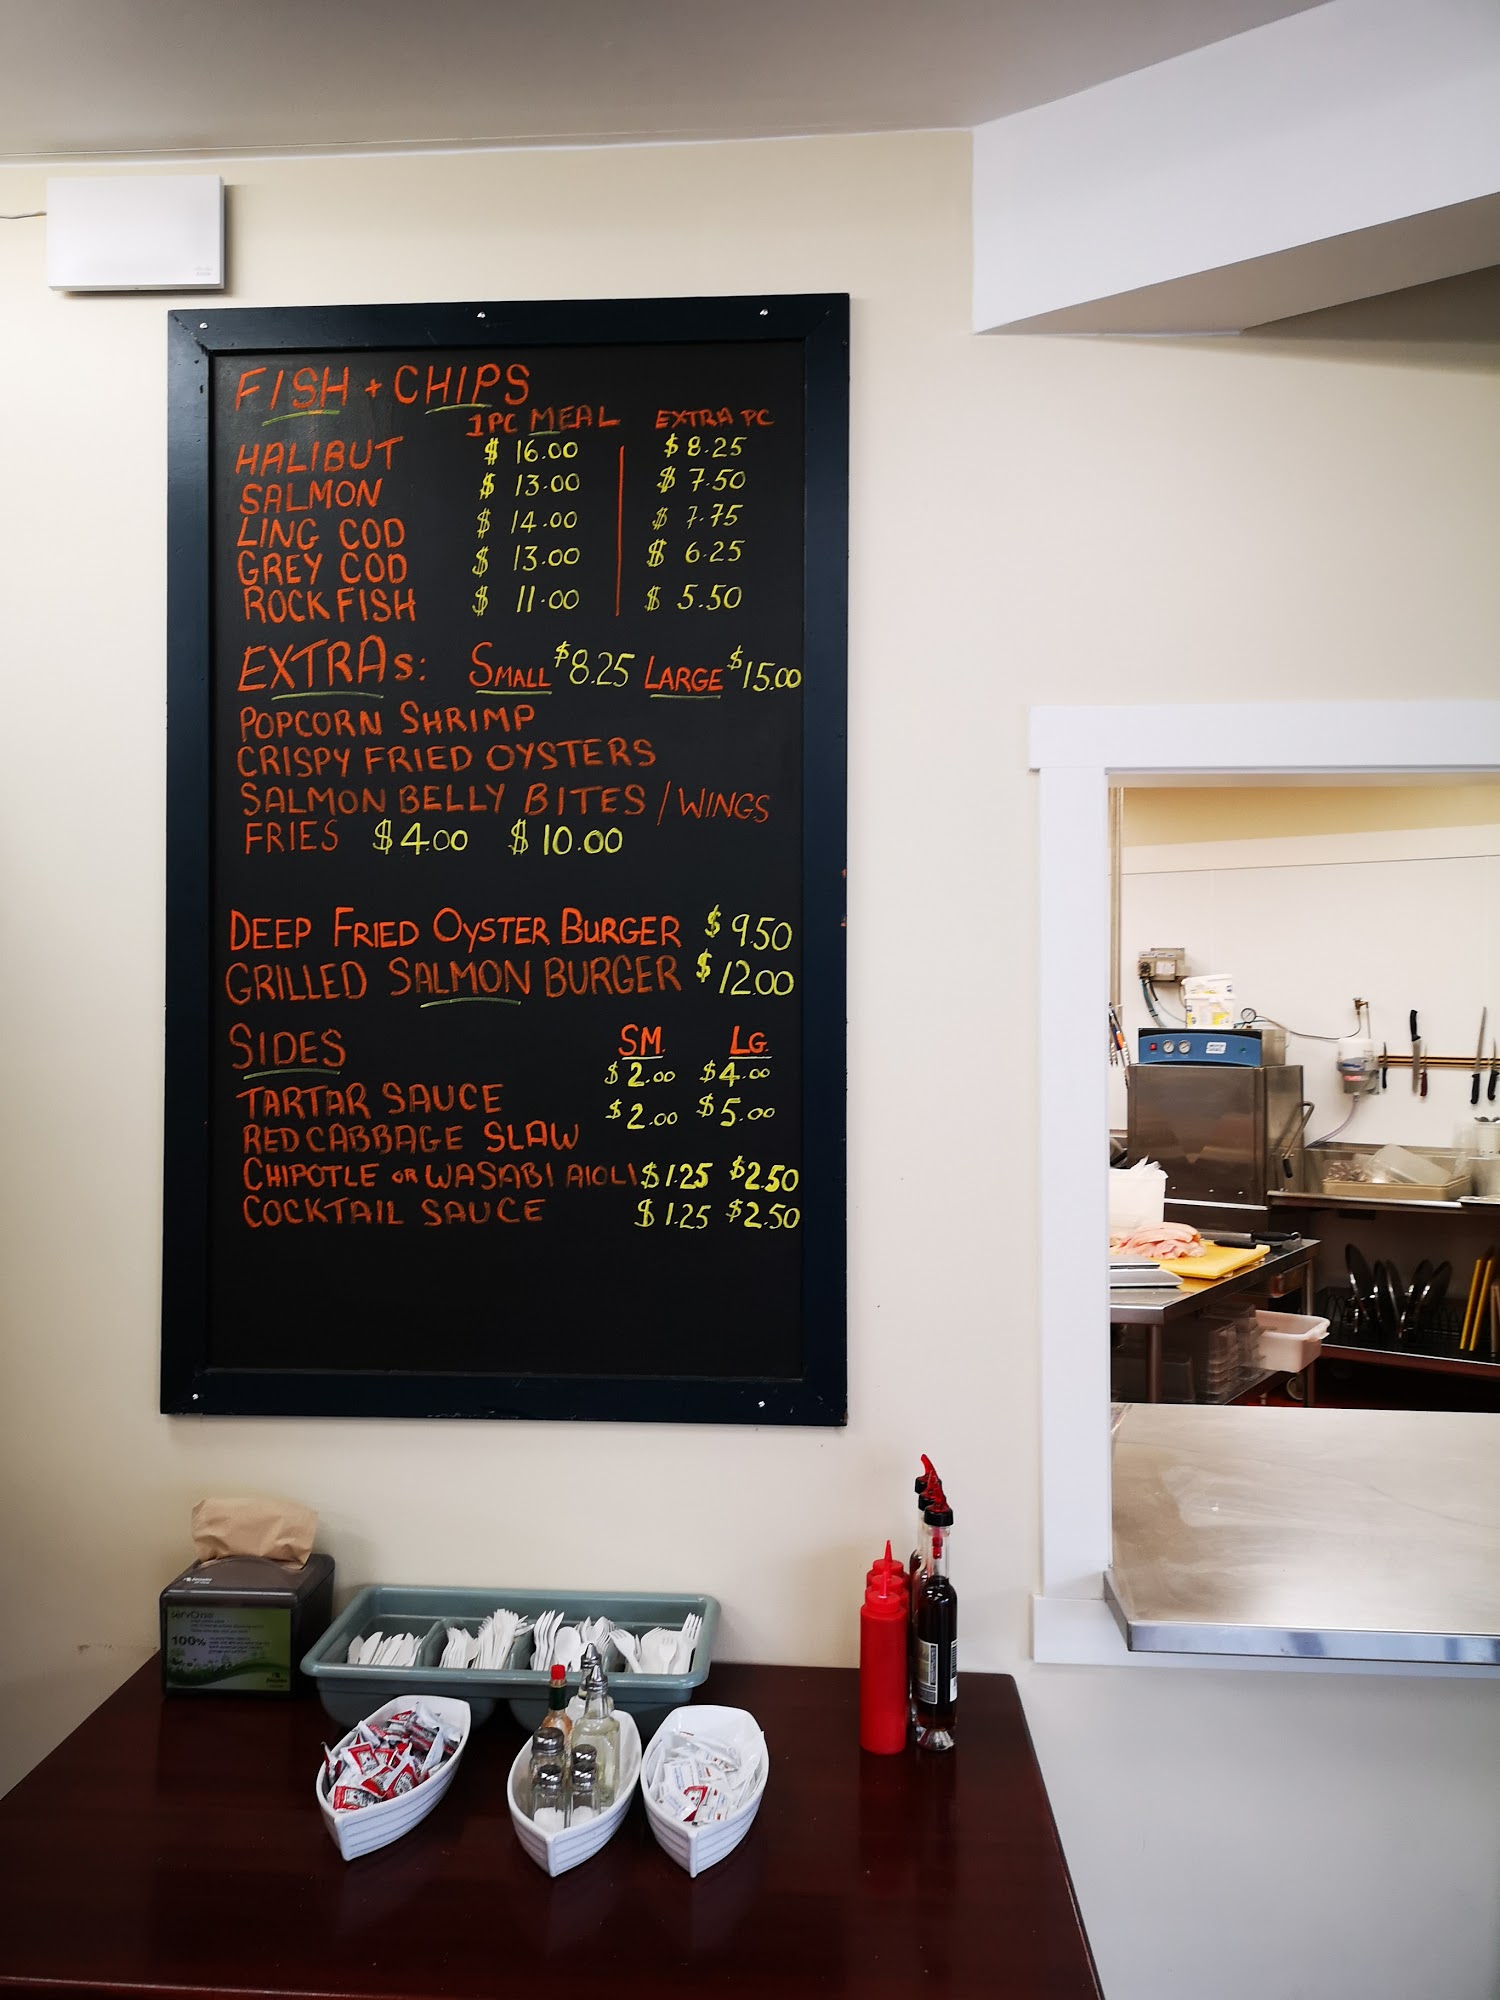 FISH + CHIPS
1PC MEAL EXTRA PC
HALIBUT $ 16.00 $ 8.25
SALMON $ 13.00 $ 7.50
LING COD $ 14.00 $ 7.75
GREY COD $ 13.00 $ 6.25
ROCKFISH $ 11.00 $ 5.50
EXTRAs: SMALL $8.25 LARGE $15.00
POPCORN SHRIMP
CRISPY FRIED OYSTERS
SALMON BELLY BITES / WINGS
FRIES $4.00 $10.00
DEEP FRIED OYSTER BURGER $9.50
GRILLED SALMON BURGER $12.00
SIDES SM. LG.
TARTAR SAUCE $2.00 $4.00
RED CABBAGE SLAW $2.00 $5.00
CHIPOTLE OR WASABI AIOLI $1.25 $2.50
COCKTAIL SAUCE $1.25 $2.50
100%